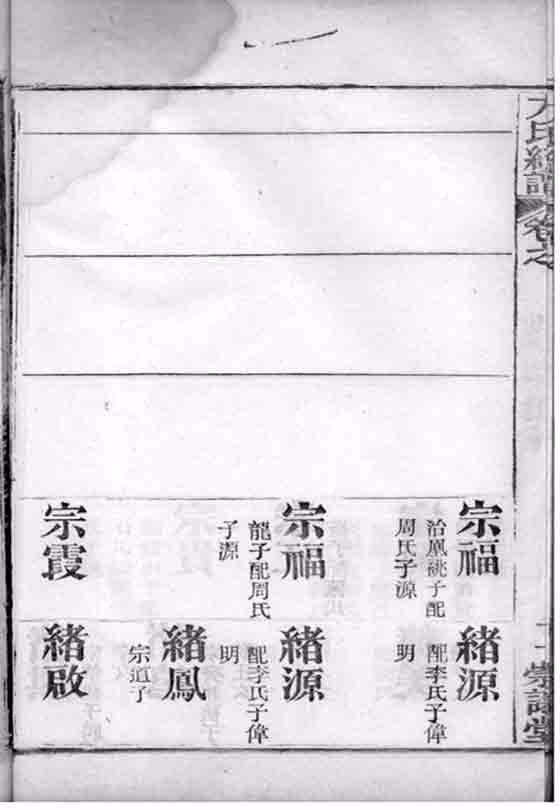 氏總譜
卷之
宗福
治凰祧子配
周氏子源
宗福
龍子配周氏
子源
宗霞
緒源
配李氏子偉
明
緒源
配李氏子偉
明
緒鳳
宗道子
緒啟